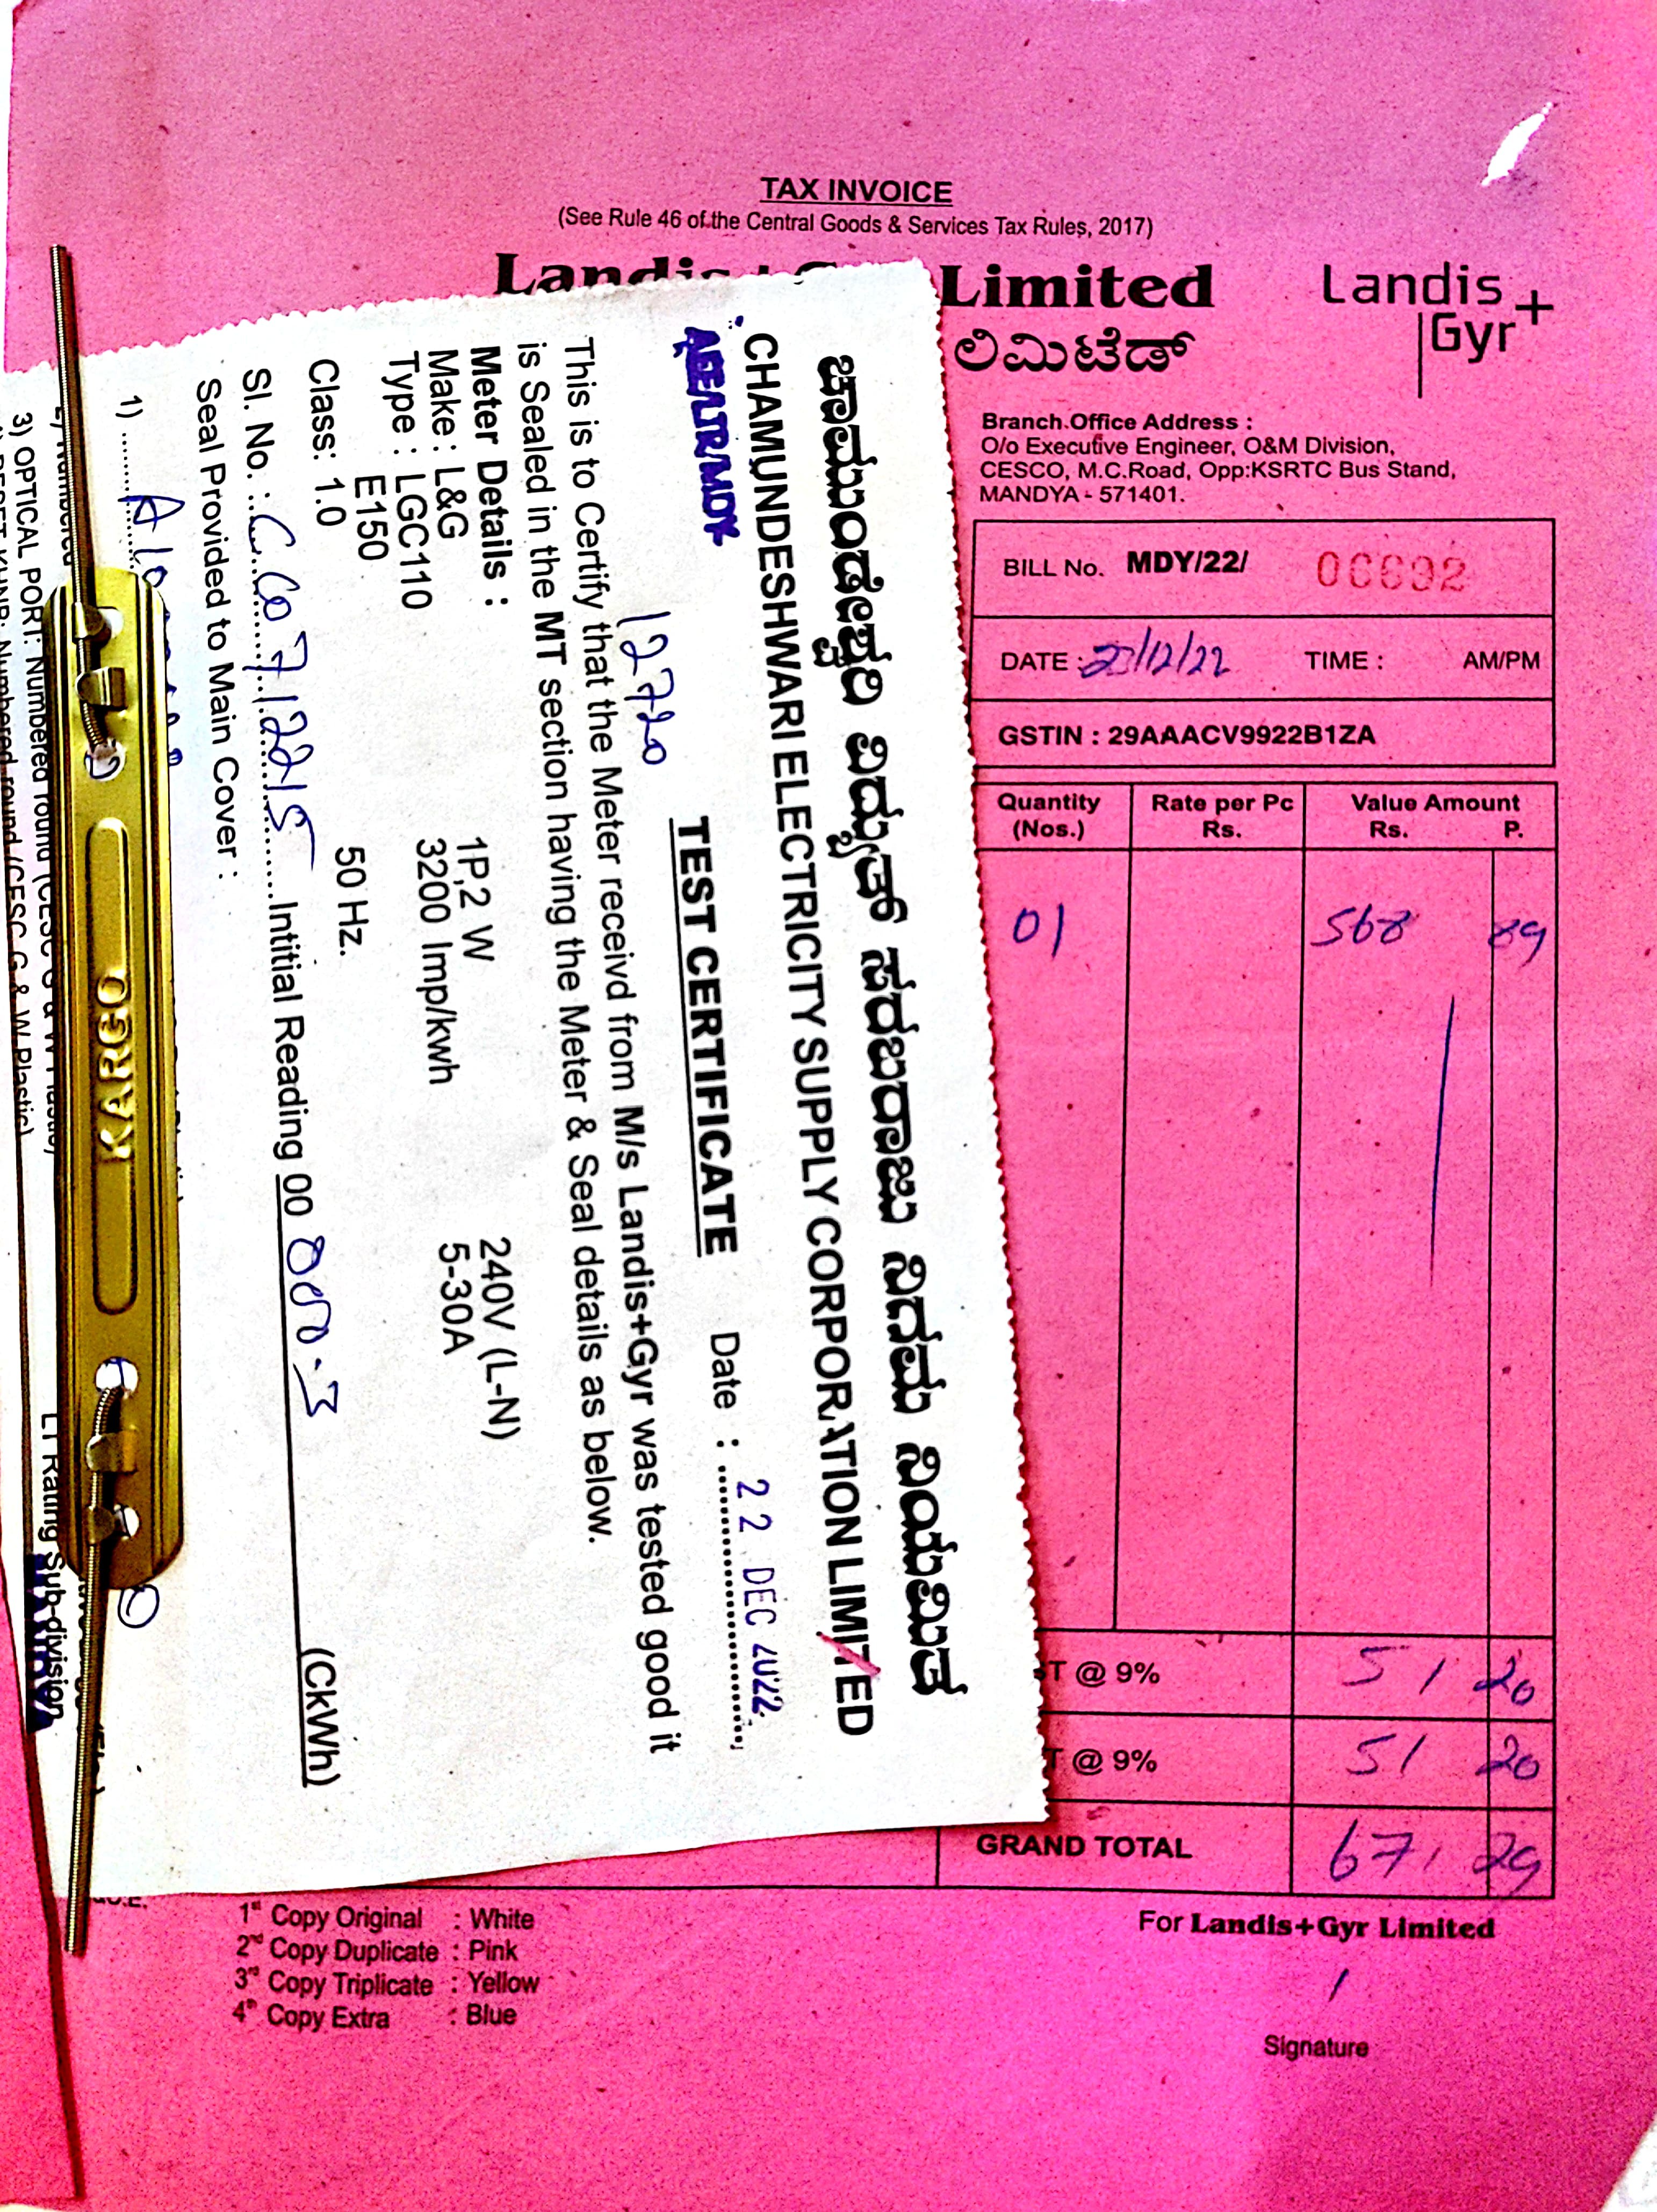 TAX INVOICE
(See Rule 46 of the Central Goods & Services Tax Rules, 2017)
Limited
ಲಿಮಿಟೆಡ್
Landis
Gyr+
Branch Office Address :
O/o Executive Engineer, O&M Division,
CESCO, M.C.Road, Opp:KSRTC Bus Stand,
MANDYA - 571401.
BILL No. MDY/22/ 06692
DATE : /12/22 TIME : AM/PM
GSTIN : 29AAACV9922B1ZA
Quantity (Nos.) Rate per Pc Rs. Value Amount Rs. P.
01 568 89
T @ 9% 51 20
T @ 9% 51 20
GRAND TOTAL 671 29
For Landis+Gyr Limited
Signature
1st Copy Original : White
2nd Copy Duplicate : Pink
3rd Copy Triplicate : Yellow
4th Copy Extra : Blue
ಚಾಮುಂಡೇಶ್ವರಿ ವಿದ್ಯುತ್ ಸರಬರಾಜು ನಿಗಮ ನಿಯಮಿತ
CHAMUNDESHWARI ELECTRICITY SUPPLY CORPORATION LIMITED
AEE/LTR/MDY
TEST CERTIFICATE
Date : 22 DEC 2022
12720
This is to Certify that the Meter receivd from M/s Landis+Gyr was tested good it
is Sealed in the MT section having the Meter & Seal details as below.
Meter Details :
Make : L&G 1P,2 W 240V (L-N)
Type : LGC110 3200 Imp/kwh 5-30A
E150
Class: 1.0 50 Hz.
Sl. No. : CC0712215 Intitial Reading 00 000.3 (CkWh)
Seal Provided to Main Cover :
1)
3) OPTICAL PORT: Numbered round
LT Rating Sub-division
KARGO